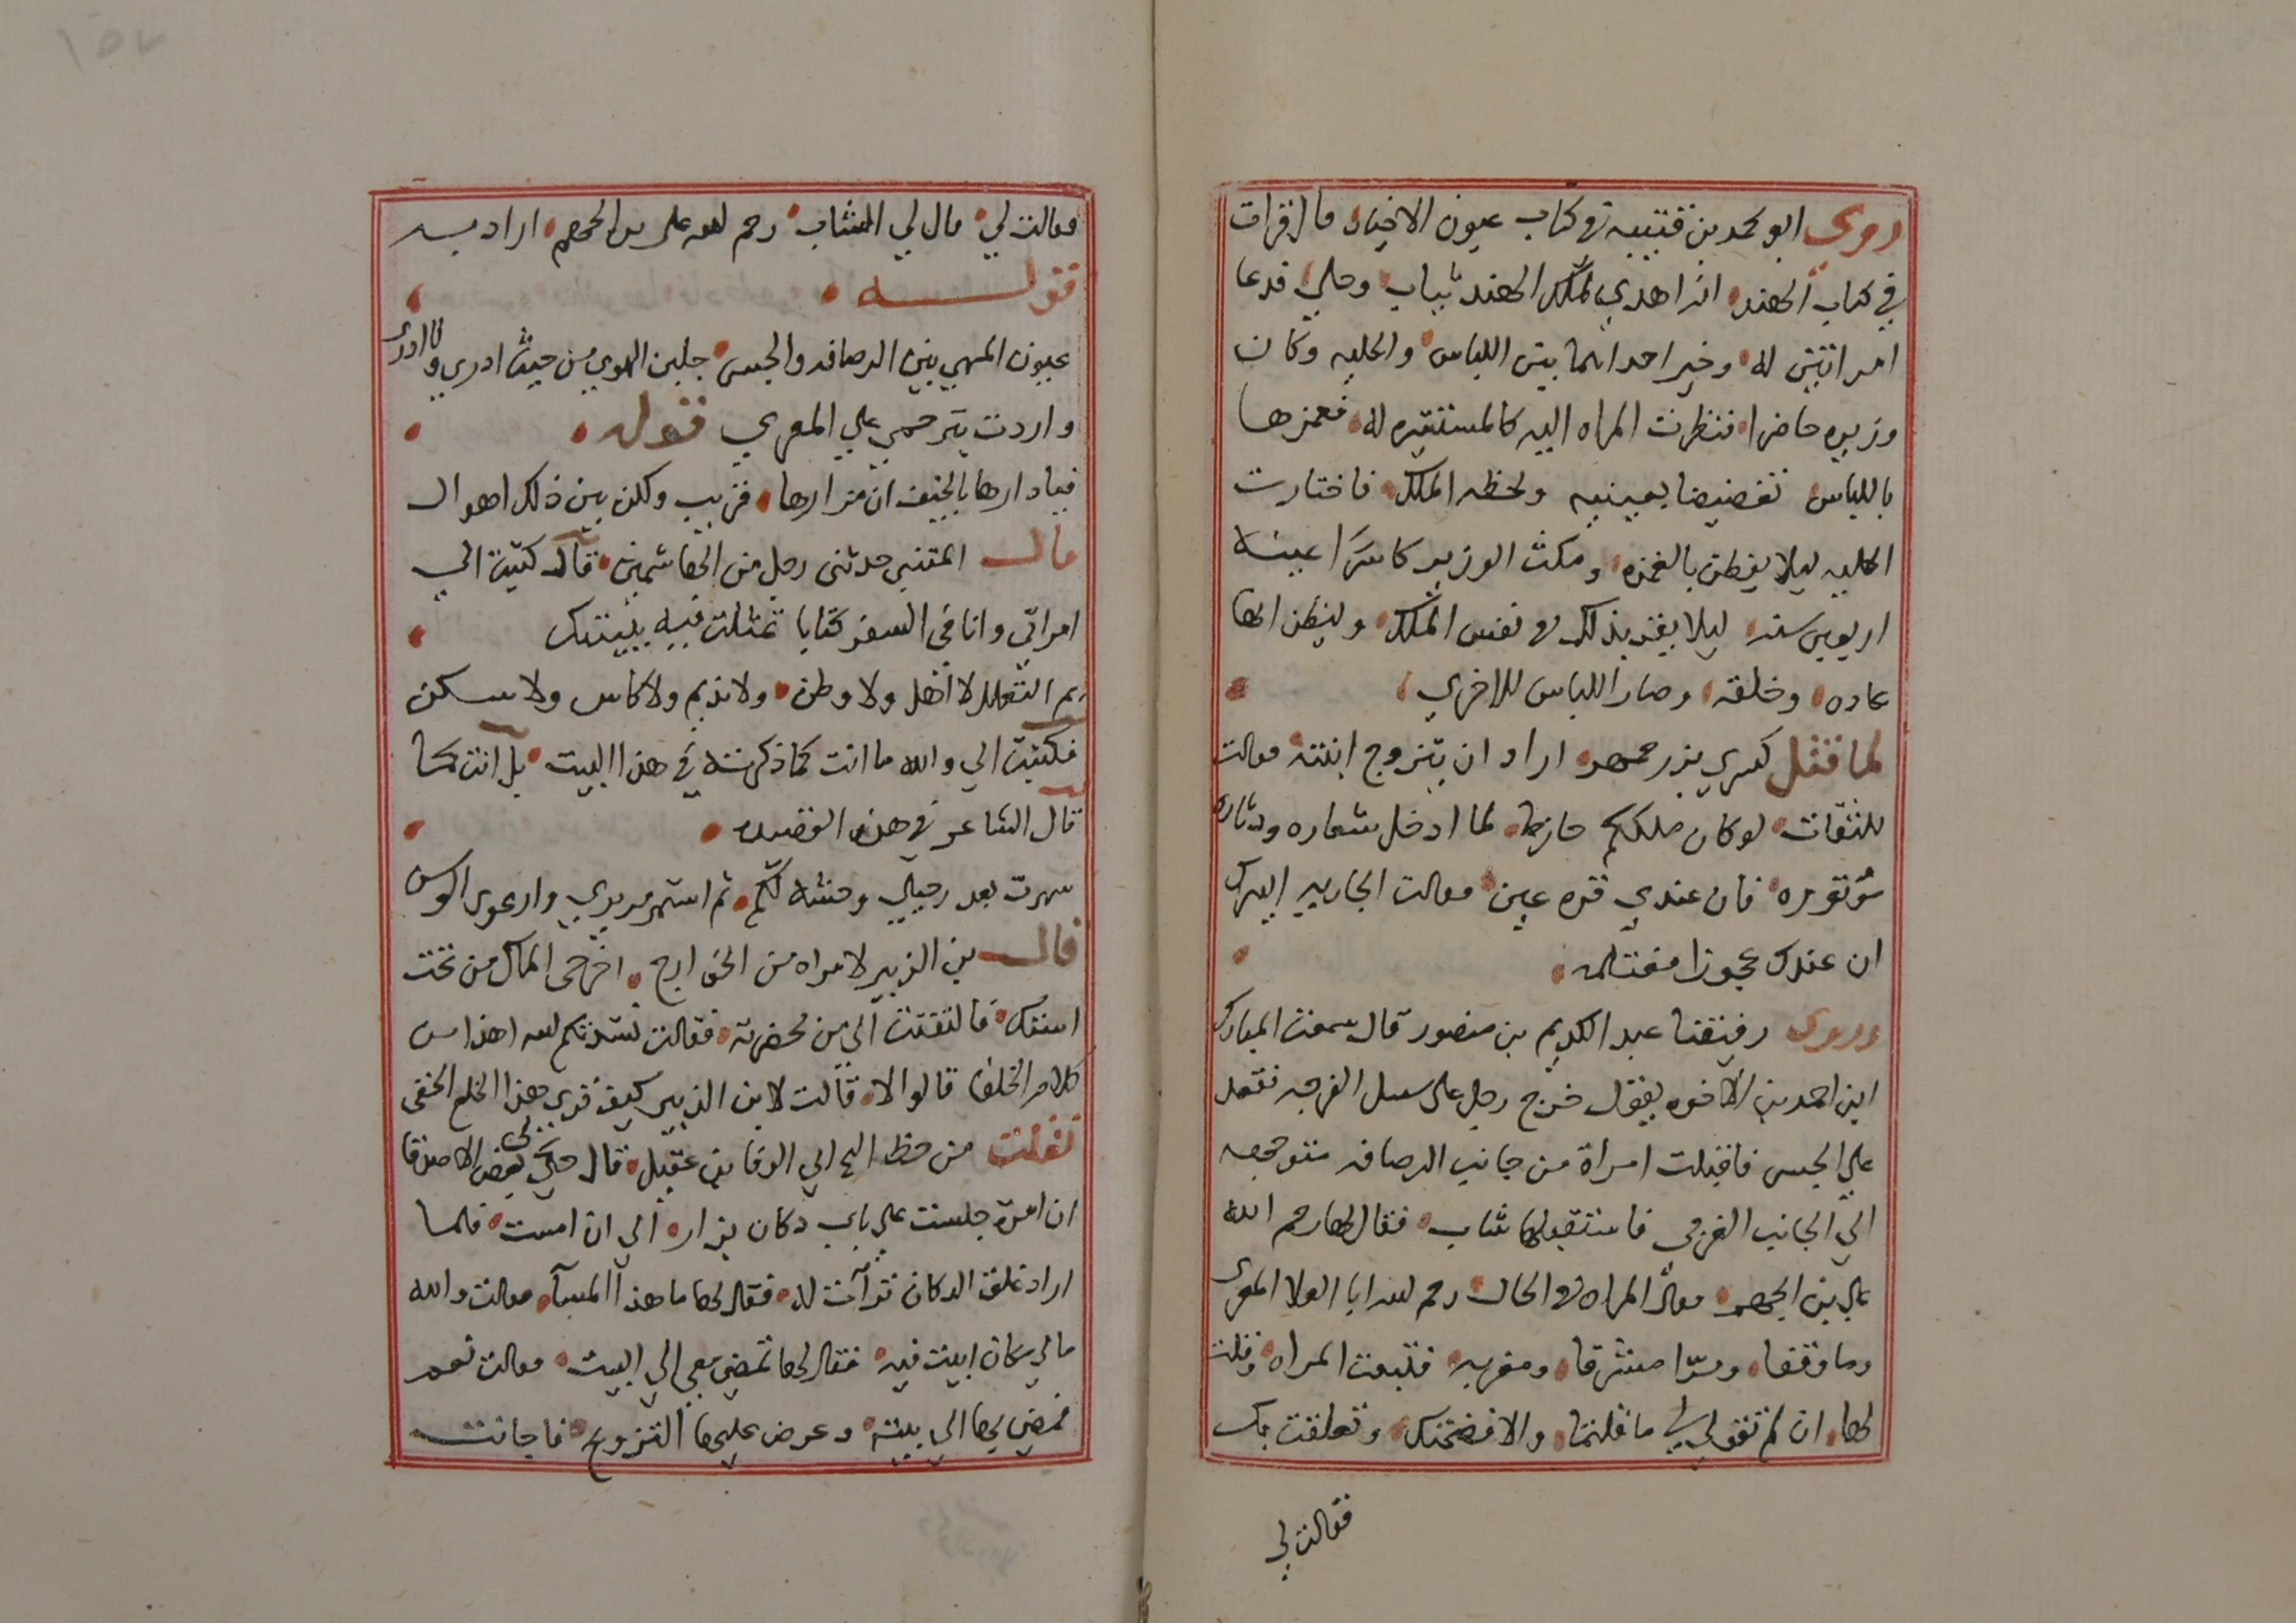 روى ابو محمد بن قتيبه في كتاب عيون الاخبار قال قرات
في كتاب الهند انه اهدي لملك الهند ثياب وحلي فدعا
امراتين له وخير احداهما بين اللباس والحليه وكان
وزيره حاضرا فنظرت المراه اليه كالمستشيره له فغمزها
باللباس تغضيضا بعينيه ولحظه الملك فاختارت
الحليه ليلا يفطن بالغمزه ومكث الوزير كاسرا عينه
اربعين سنه ليلا يقر بذلك في نفس الملك وليظن انها
عاده وخلقه وصار اللباس للاخري
لما قتل كسري بزرجمهر اراد ان يتزوج ابنته فقالت
للثقات لو كان ملككم حازما لما ادخل شعاره ودثاره
موتوره فان عندي قره عين فقالت الجاريه اليس
ان عندك عجوزا مغتلمه
وروى رفيقنا عبد الكريم بن منصور قال سمعت المبارك
ابن احمد بن الاخوه يقول خرج رجل على سبيل الفرجه فقعد
علي الجسر فاقبلت امراة من جانب الرصافه متوجهه
الي الجانب الغربي فاستقبلها شاب فقال لها رحم الله
علي بن الجهم فقالت المراه في الحال رحم الله ابا العلا المعرى
وما وقفا ومرا مشرقا ومغربه فتبعت المراه وقلت
لها ان لم تقولي لي ما قلتما والا فضحتك وتعلقت بك
فقالت لي
فقالت لي قال لي الشاب رحم الله على بن الجهم اراد به
قولـــه
عيون المهي بين الرصافه والجسر جلبن الهوي من حيث ادري ولا ادرى
واردت بترحمي علي المعري قوله
فيا دارها بالخيف ان مزارها قريب ولكن بين ذلك اهوال
قال المتنبي حدثني رجل من الهاشمين قال كتبت الي
امراتي وانا في السفر كتابا تمثلت فيه ببيتك
بم التعلل لا اهل ولا وطن ولا نديم ولا كاس ولا سكن
فكتبت الي والله ما انت كما ذكرته في هذا البيت بل انت كما
قال الشاعر في هذه القصيده
سهرت بعد رحيلي وحشة لكم ثم استمر مريري وارعوى الوسن
قال بن الزبير لامراه من الخوارج اخرجى المال من تحت
استك فالتفتت الى من بحضرته فقالت نشدتكم الله اهذا من
كلام الخلفا قالوا لا قالت لابن الزبير كيف تري هذا الخلع الخفى
نقلت من خط الي الوفا بن عقيل قال حكي لى بعض الاصدقا
ان امرة جلست علي باب دكان بزاره الي ان امست فلما
اراد غلق الدكان ترآت له فقال لها ما هذا المسآ فقالت والله
ما لي مكان ابيت فيه فقال لها تمضي معي الي البيت فقالت نعم
فمضي بها الي بيته وعرض عليها التزوج فاجابت